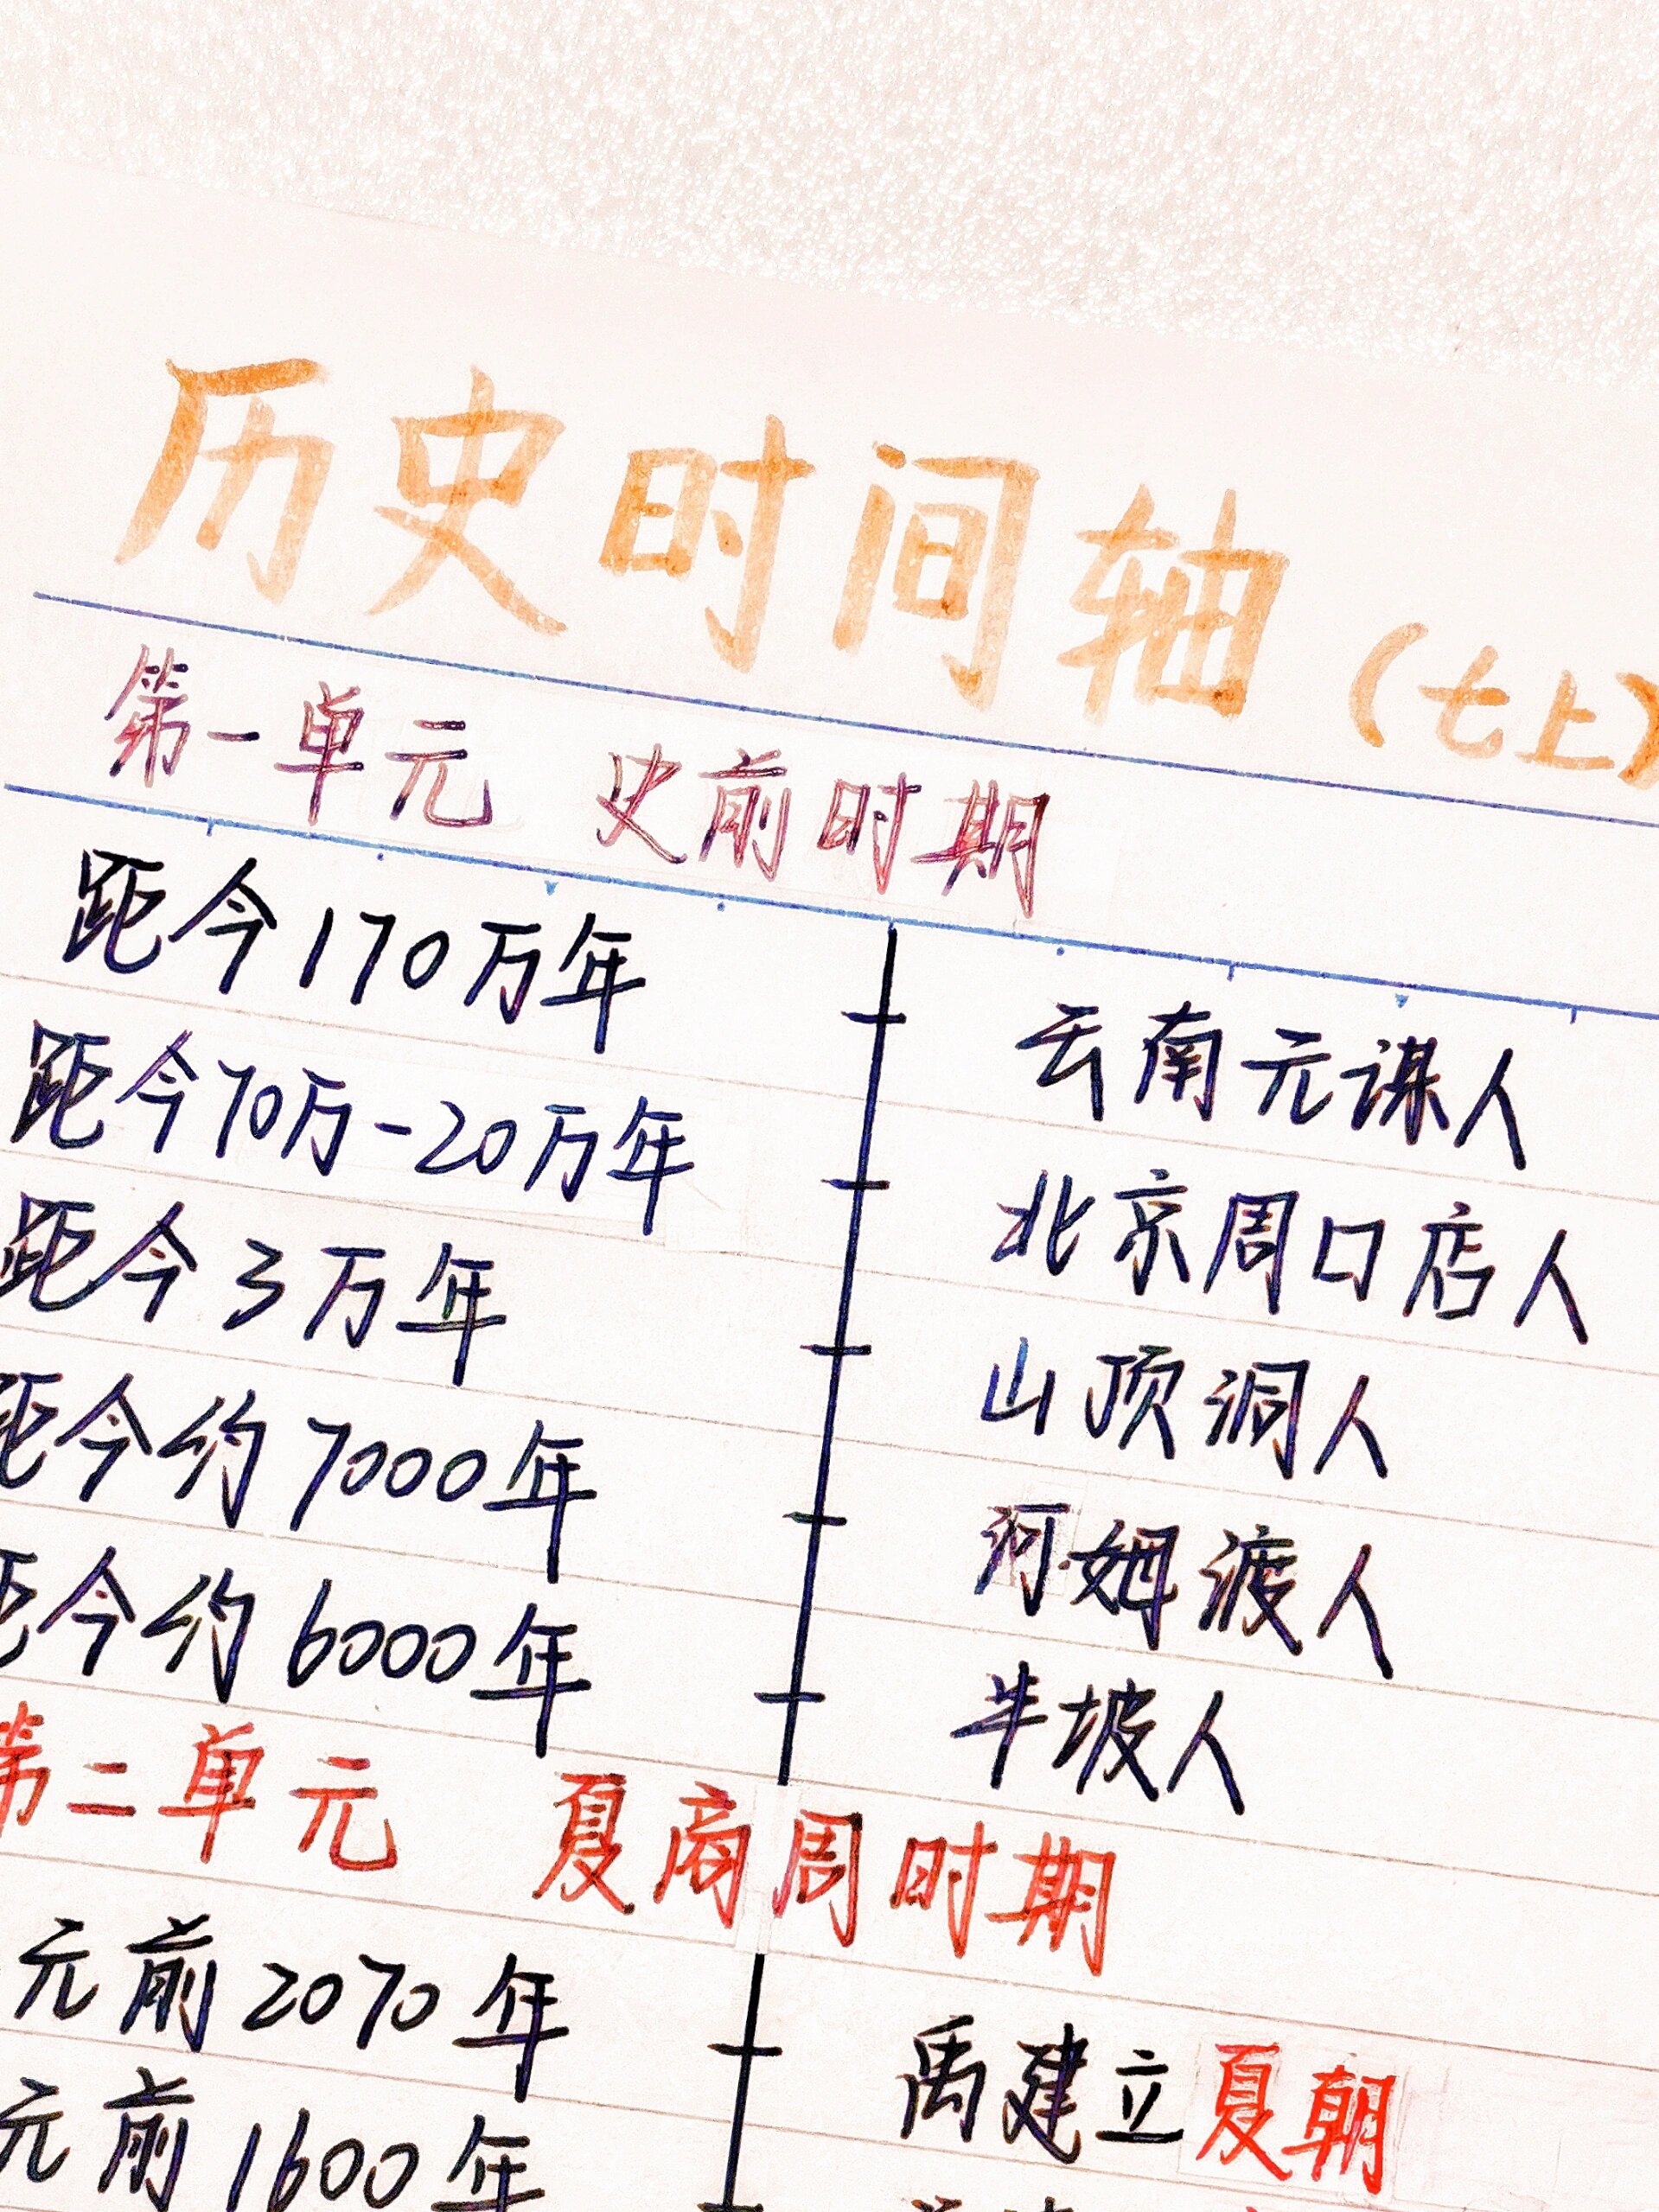 历史时间轴（七上）
第一单元 史前时期
距今170万年 云南元谋人
距今70万-20万年 北京周口店人
距今3万年 山顶洞人
距今约7000年 河姆渡人
距今约6000年 半坡人
第二单元 夏商周时期
元前2070年 禹建立夏朝
元前1600年